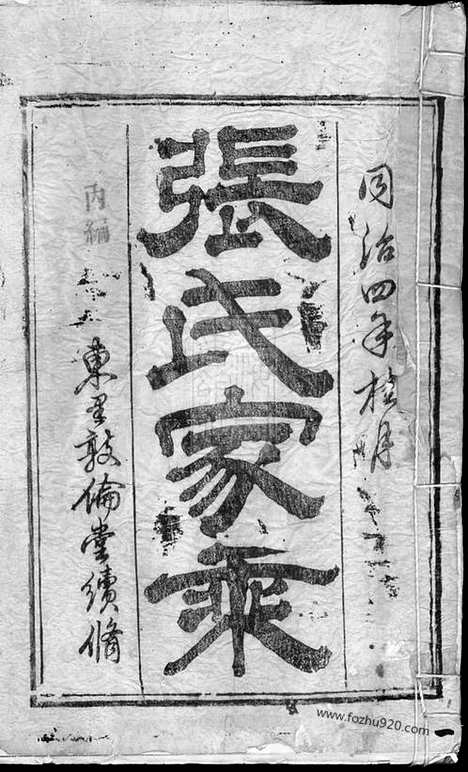 同治四年桂月
張氏家乘
丙編
東里敦倫堂續脩
www.fozhu920.com